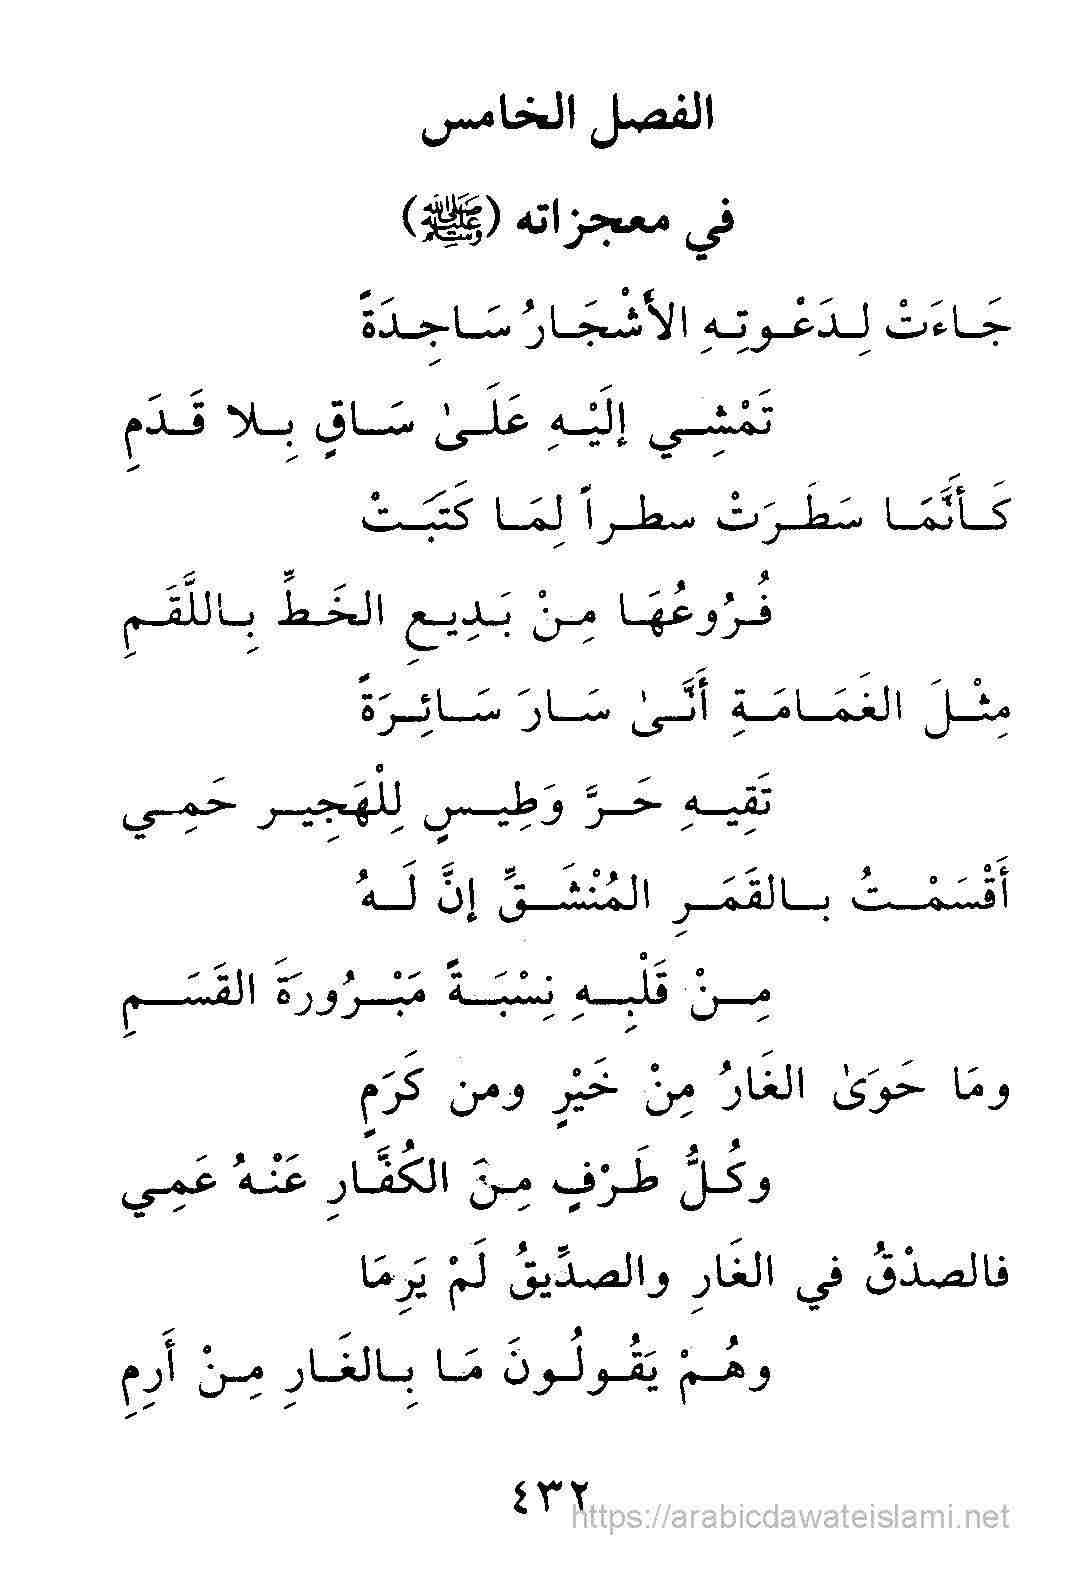 الفصل الخامس
في معجزاته (ﷺ)
جَاءَتْ لِدَعْوتِهِ الأَشْجَارُ سَاجِدَةً
تَمْشِي إلَيْهِ عَلَىٰ سَاقٍ بِلا قَدَمِ
كَأَنَّمَا سَطَرَتْ سطراً لِمَا كَتَبَتْ
فُرُوعُهَا مِنْ بَدِيعِ الخَطِّ بِاللَّقَمِ
مِثْلَ الغَمَامَةِ أَنَّىٰ سَارَ سَائِرَةً
تَقِيهِ حَرَّ وَطِيسٍ لِلْهَجِيرِ حَمِي
أَقْسَمْتُ بالقَمَرِ المُنْشَقِّ إنَّ لَهُ
مِنْ قَلْبِهِ نِسْبَةً مَبْرُورَةَ القَسَمِ
ومَا حَوَىٰ الغَارُ مِنْ خَيْرٍ ومن كَرَمٍ
وكُلُّ طَرْفٍ مِنَ الكُفَّارِ عَنْهُ عَمِي
فالصدْقُ في الغَارِ والصدِّيقُ لَمْ يَرِمَا
وهُمْ يَقُولُونَ مَا بِالغَارِ مِنْ أَرِمِ
٤٣٢
https://arabicdawateislami.net